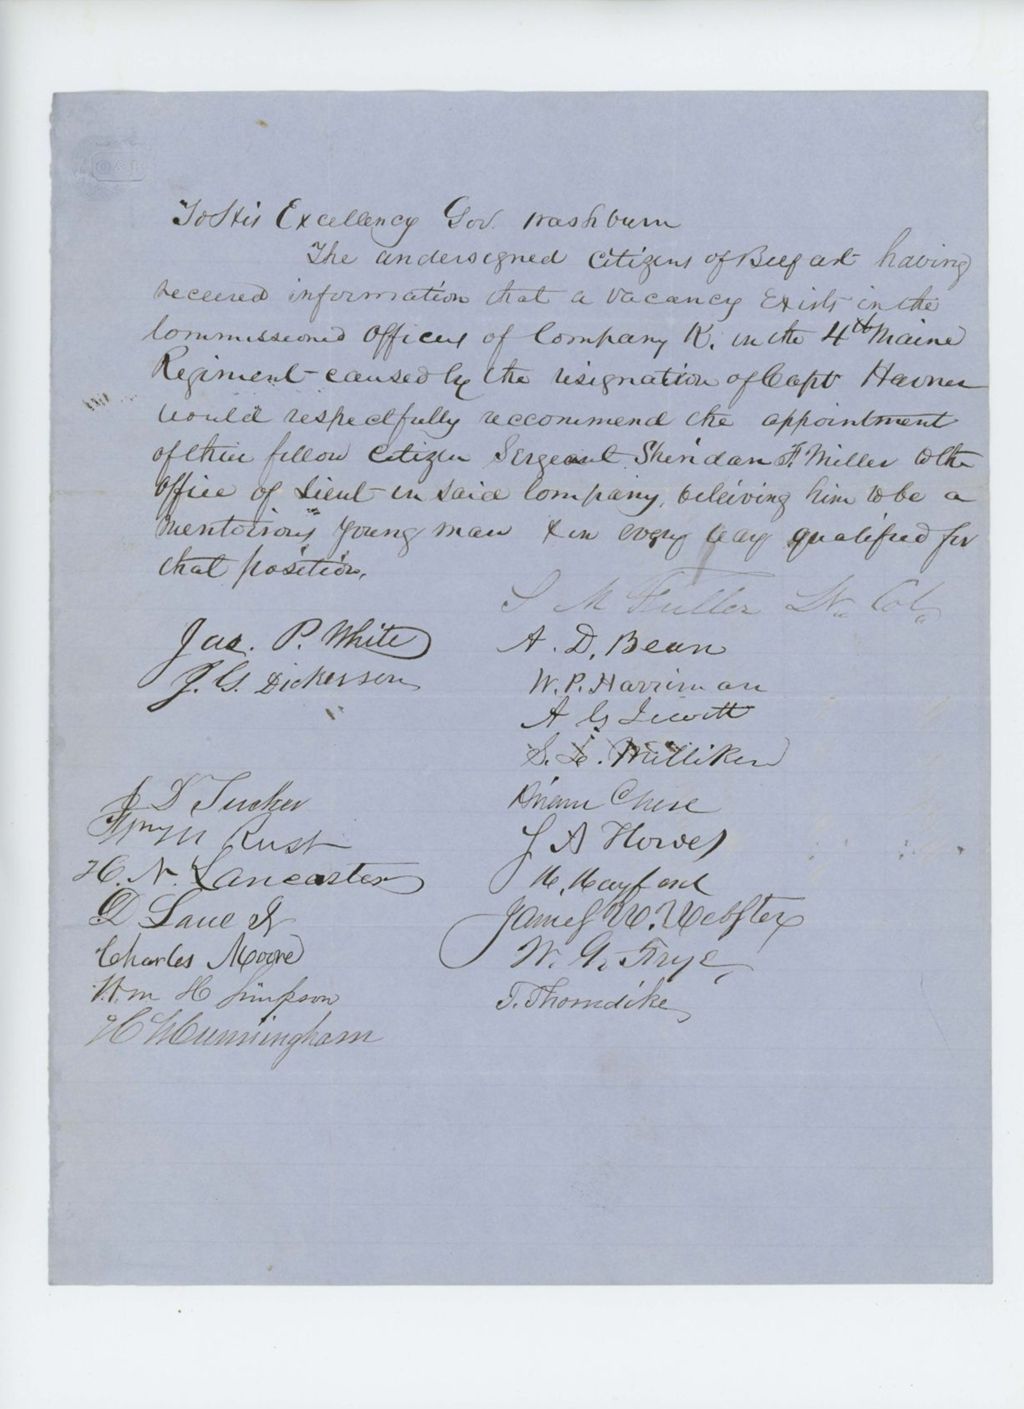 To His Excellency Gov. Washburn
The undersigned Citizens of Belfast having
received information that a vacancy Exists in the
Commissioned Officers of Company K. in the 4th Maine
Regiment caused by the resignation of Capt
would respectfully reccommend the appointment
of their fellow Citizen Sergeant Sheridan F. Miller to the
Office of Lieut in said Company, beleiving him to be a
meritorious young man & in every way qualified for
that position.
S M Fuller Lt. Col.
Jas. P. White
A. D. Bean
J. G. Dickerson
W. P. Harriman
A G Jewett
S. L. Milliken
J D Tucker
Hiram Chase
Wm M Rust
J A Howes
H. N. Lancaster
D Lane Jr
James W. Webster
Charles Moore
W. G. Frye
Wm H Simpson
T. Thorndike
Cunningham